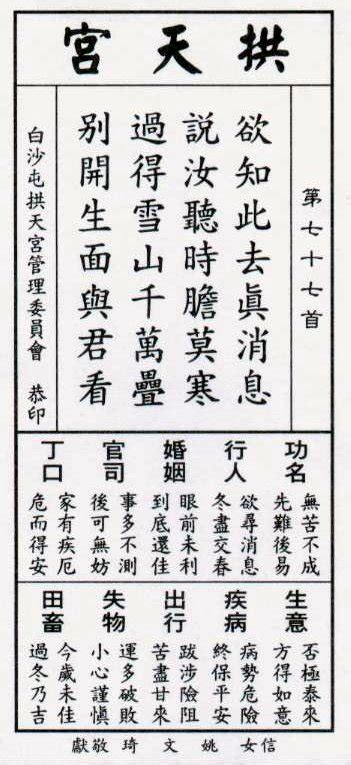 拱天宮
第七十七首
欲知此去眞消息
說汝聽時膽莫寒
過得雪山千萬疊
別開生面與君看
白沙屯拱天宮管理委員會　恭印
功名
無苦不成
先難後易
行人
欲尋消息
冬盡交春
婚姻
眼前未利
到底還佳
官司
事多不測
後可無妨
丁口
家有疾厄
危而得安
生意
否極泰來
方得如意
疾病
病勢危險
終保平安
出行
跋涉險阻
苦盡甘來
失物
運多破敗
小心謹慎
田畜
今歲未佳
過冬乃吉
信女　姚文琦　敬獻